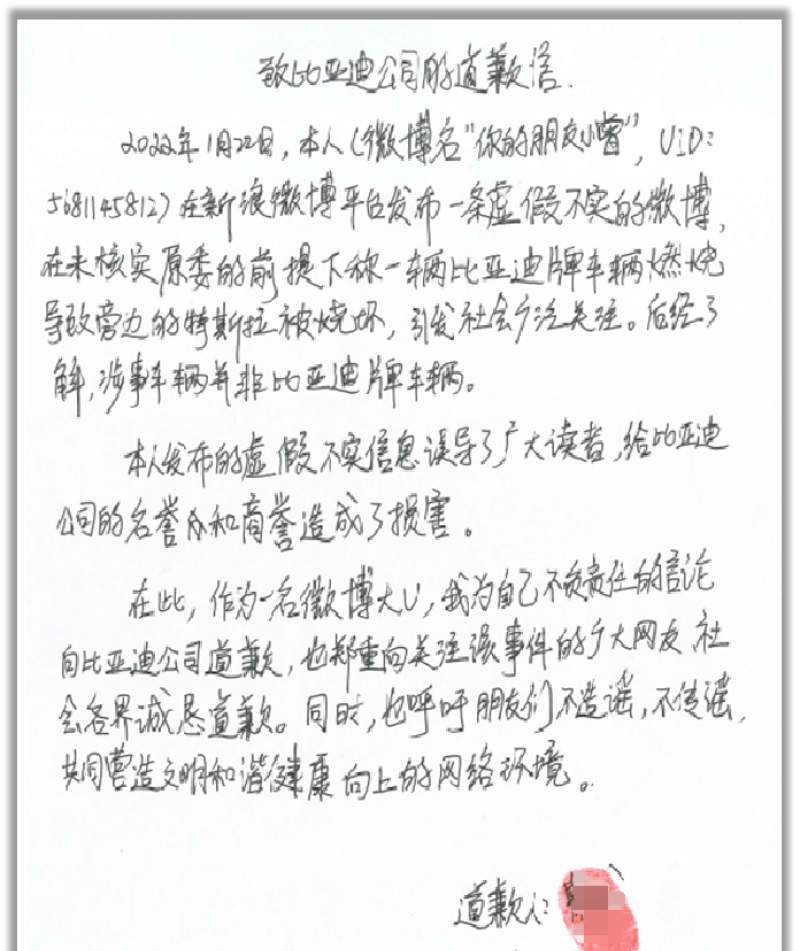 致比亚迪公司的道歉信.
2022年1月22日,本人(微博名"你的朋友小曾",UID:
5681145812)在新浪微博平台发布一条虚假不实的微博,
在未核实原委的前提下称一辆比亚迪牌车辆燃烧
导致旁边的特斯拉被烧坏,引发社会广泛关注。后经了
解,涉事车辆并非比亚迪牌车辆。
本人发布的虚假不实信息误导了广大读者,给比亚迪
公司的名誉和商誉造成了损害。
在此,作为一名微博大V,我为自己不负责任的言论
向比亚迪公司道歉,也郑重向关注该事件的广大网友、社
会各界诚恳道歉。同时,也呼吁朋友们,不造谣,不传谣,
共同营造文明和谐健康向上的网络环境。
道歉人: